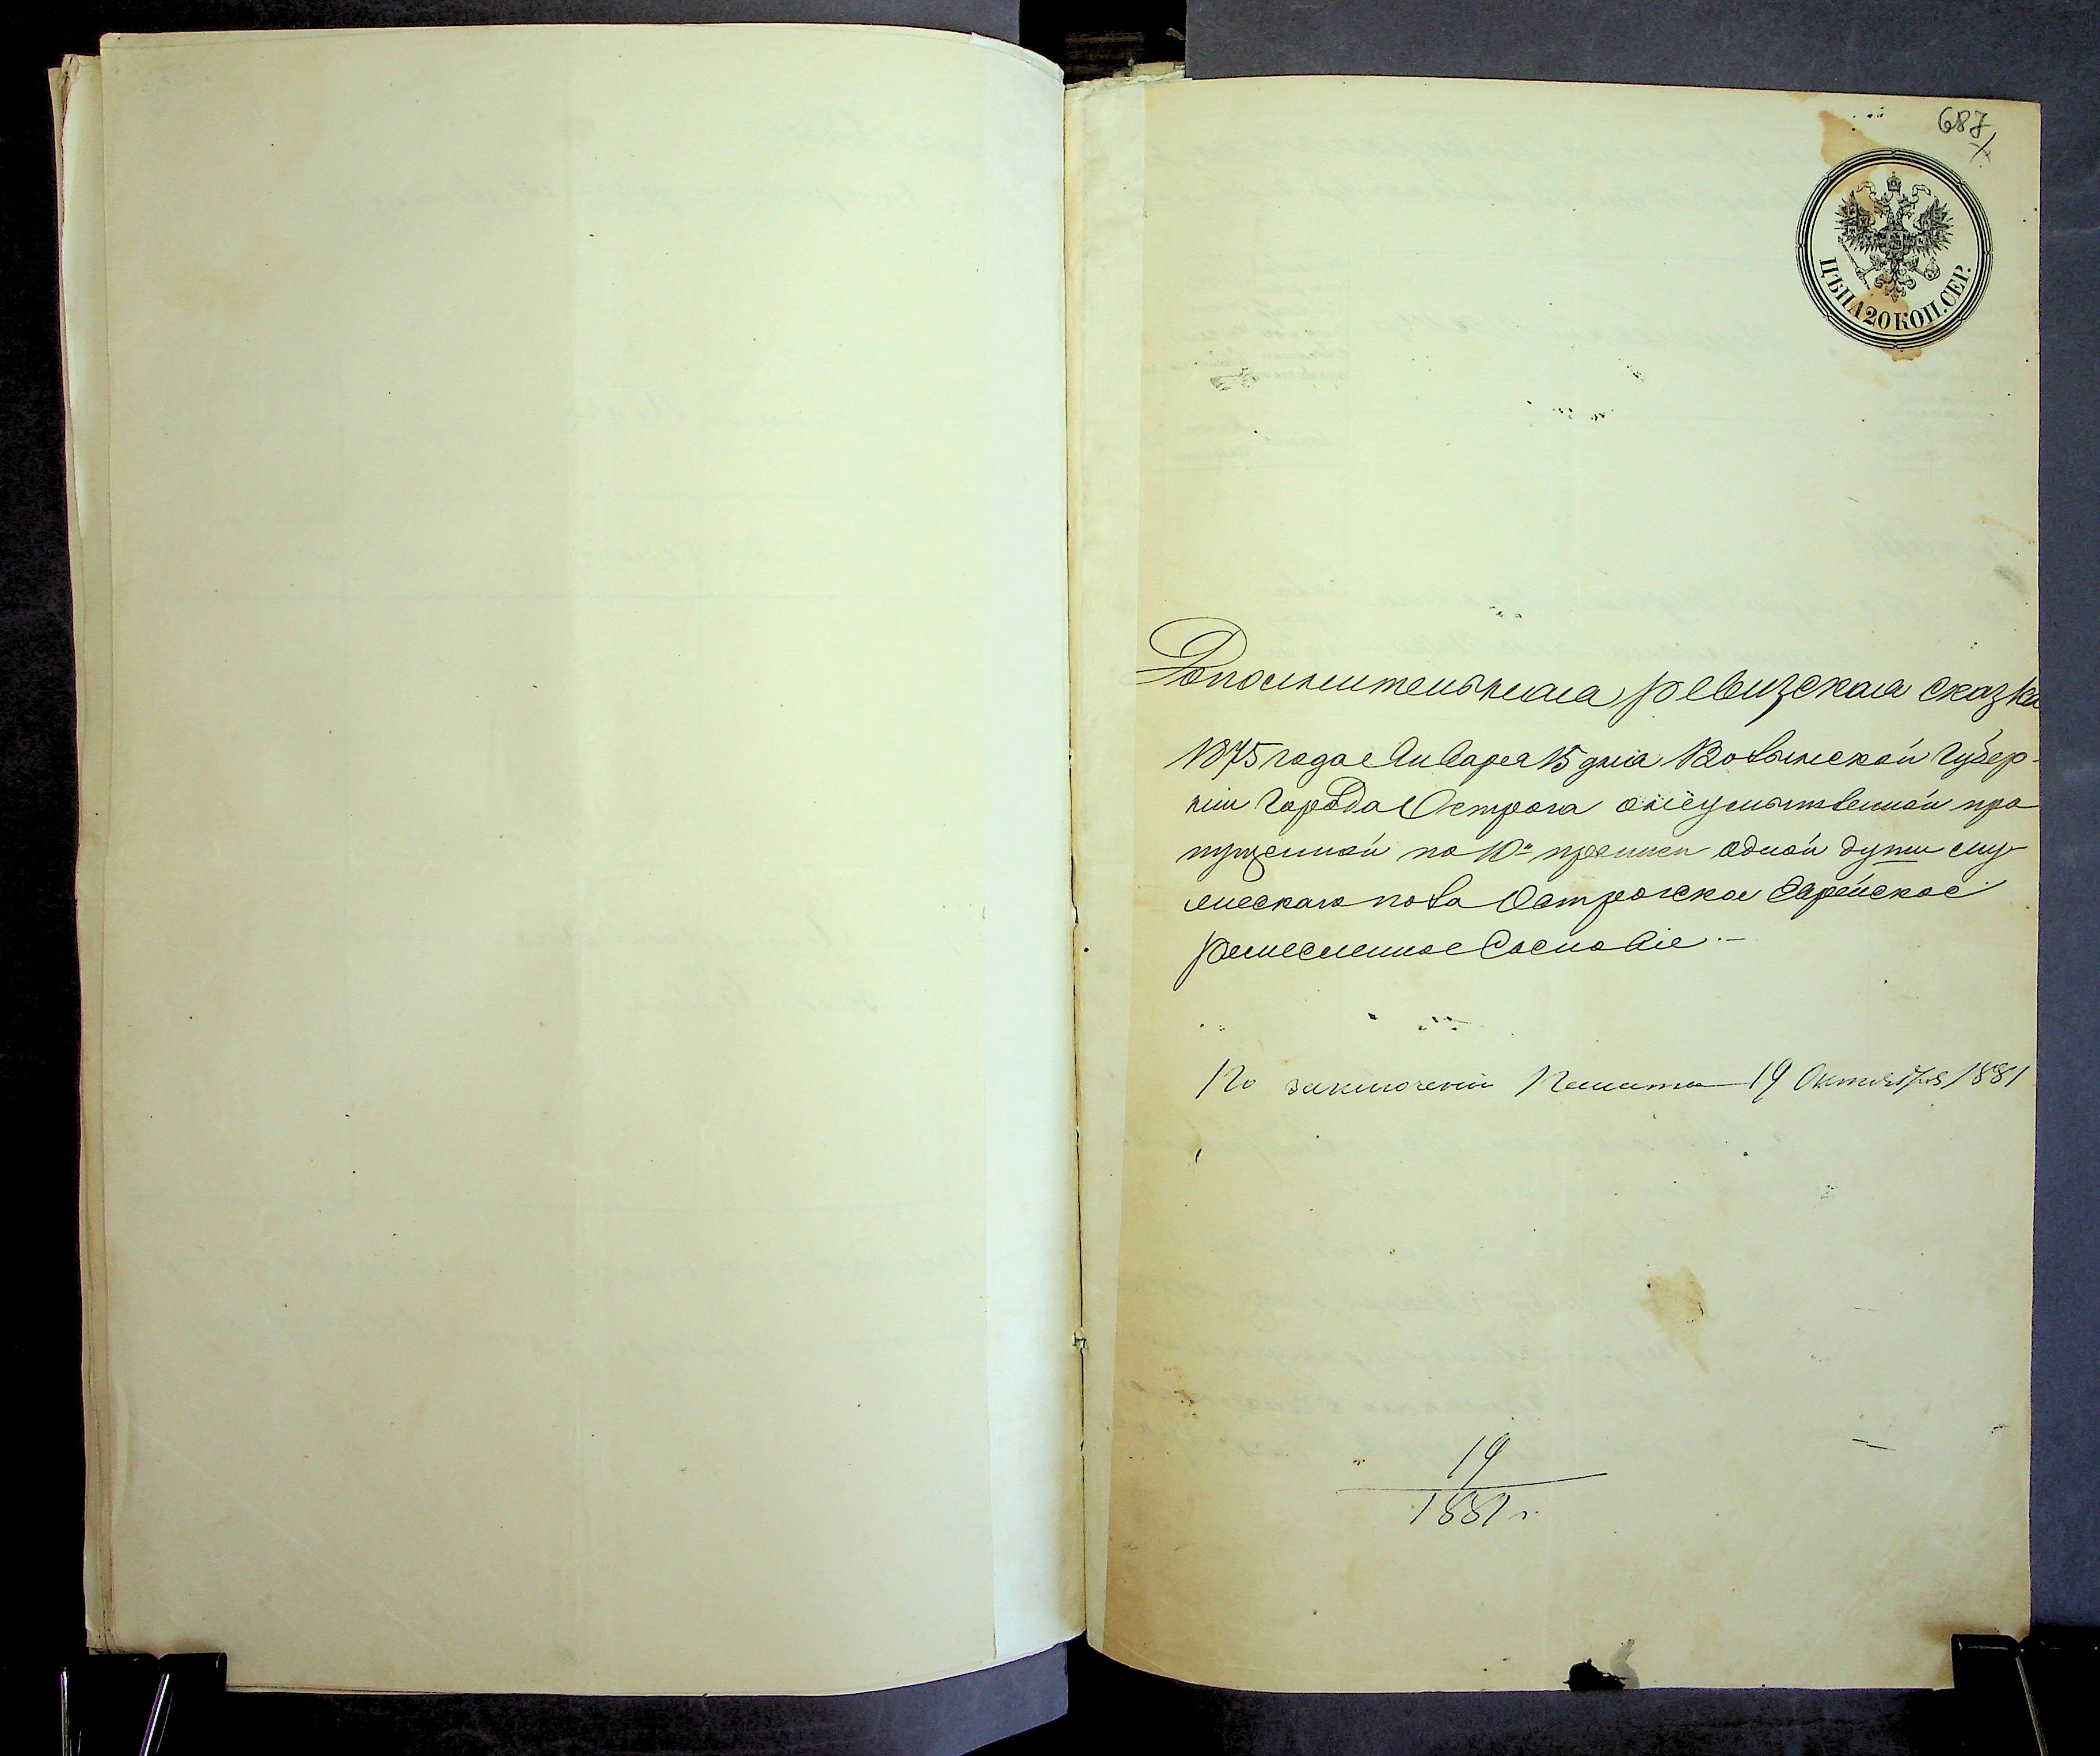 687
ЦѢНА 20 КОП. СЕР.
Дополнительная ревизская сказка
1875 года Января 15 дня Волынской Губер-
ніи Города Острога о неумышленной про
пущенной по 10й переписи одной души му-
жескаго пола Острожское Еврейское
ремесленное Сословіе.-
По заключенію Палаты 19 Октября 1881
19
1881 г.